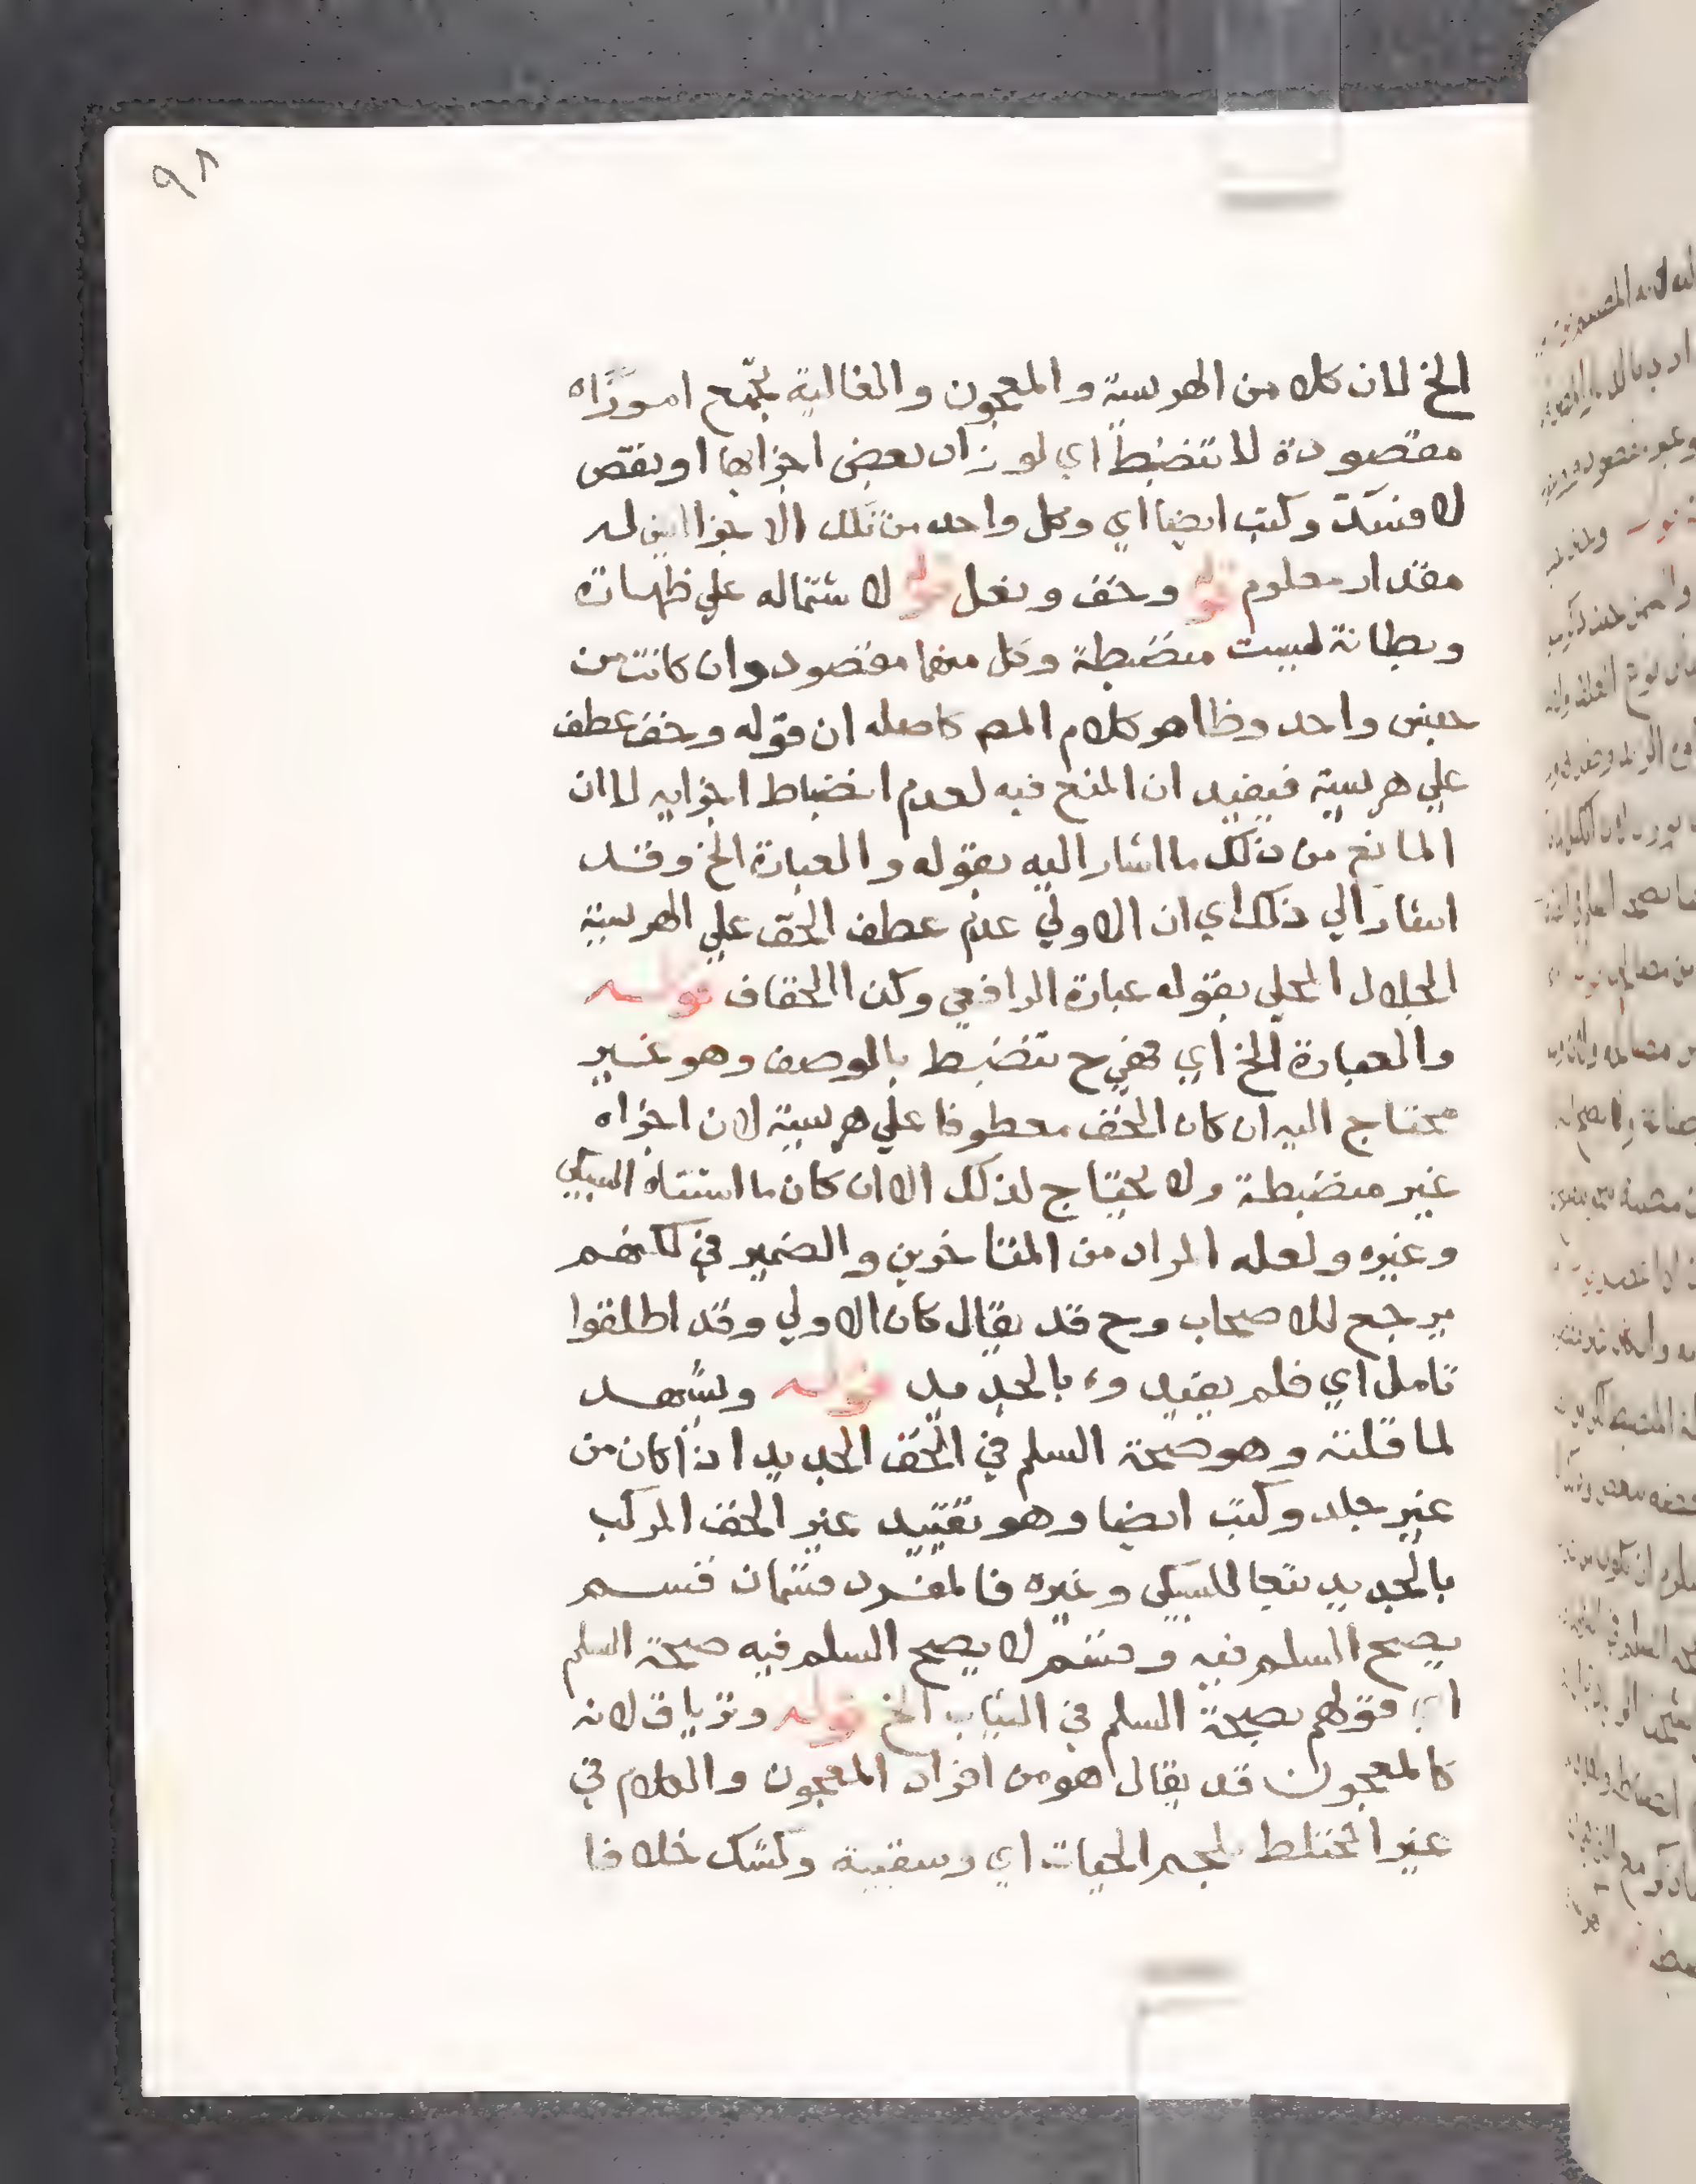 ٩٨
الخ لان كلا من الهريسة والمعجون والغالية يجمع اموزاه
مقصودة لا تنضبط اي لو زاد بعض اجزايها او نقص
لا فسدت وكتب ايضا اي وكل واحد من تلك الاجزا ليس له
مقدار معلوم قوله وخف ونعل قوله لاشتماله علي ظهارة
وبطانة ليست منضبطة وكل منهما مقصود وان كانت من
جنس واحد وظاهر كلام المص كاصله ان قوله وخف عطف
علي هريسة فيفيد ان المنع فيه لعدم انضباط اجزايه لا ان
المانع من ذلك ما اشار اليه بقوله والعبارة الخ وقد
اشار الي ذلك اي ان الاولي عدم عطف الخف علي الهريسة
الجلال المحلي بقوله عبارة الرافعي وكذا الخفاف قوله
والعبارة الخ اي فهي ح تنضبط بالوصف وهو غير
محتاج اليه ان كان الخف معطوفا علي هريسة لان اجزاه
غير منضبطة ولا يحتاج لذلك الا ان كان ما استثناه السبكي
وغيره ولعله المراد من المتاخرين والضمير في كلامهم
يرجع للاصحاب وح قد يقال كان الاولي وقد اطلقوا
تامل اي فلم يقيدوه بالجديد قوله ويشهد
لما قلته وهو صحة السلم في الخف الجديد اذا كان من
غير جلد وكتب ايضا وهو تقييد غير الخف المركب
بالجديد تبعا للسبكي وغيره فالمفرد قسمان قسم
يصح السلم فيه وقسم لا يصح السلم فيه صحة السلم
اي قولهم بصحة السلم في الثياب الخ قوله وترياق لانه
كالمعجون قد يقال هو من افراد المعجون والكلام في
غير المختلط بلحم الحيات اي وسقيه وكشك خلافا